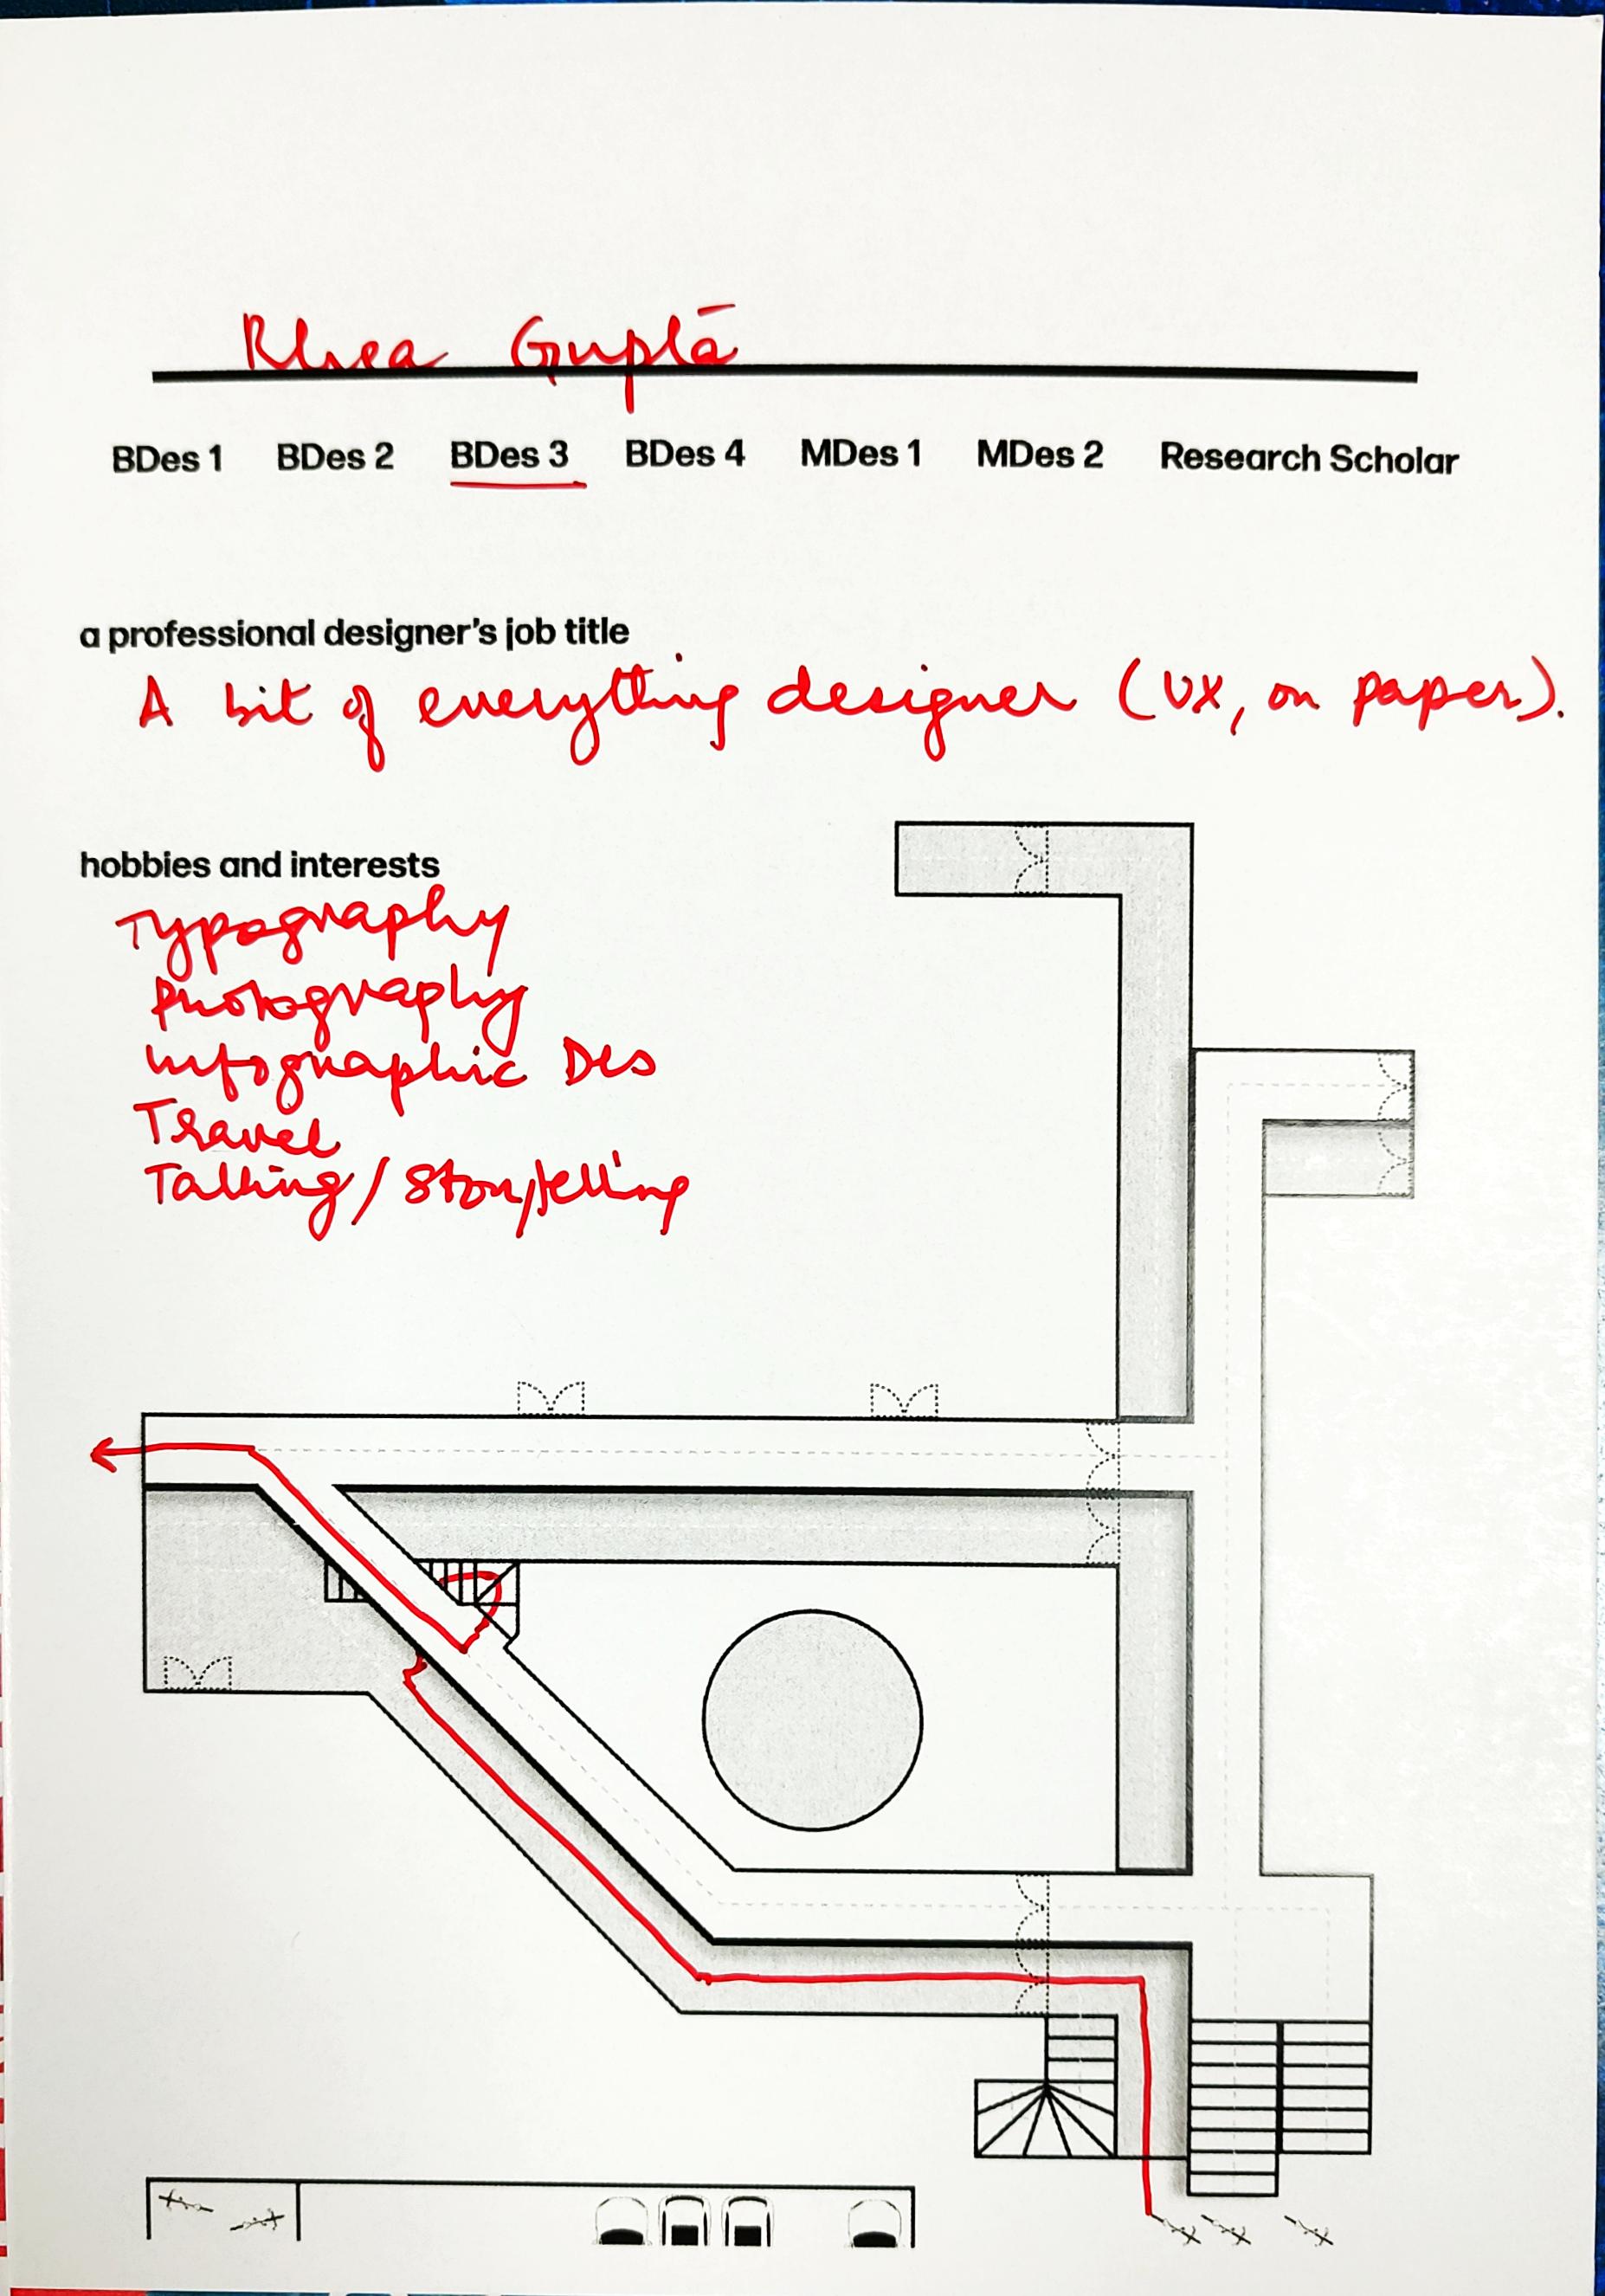 Rhea Gupta
BDes 1 BDes 2 BDes 3 BDes 4 MDes 1 MDes 2 Research Scholar
a professional designer's job title
A bit of everything designer (UX, on paper).
hobbies and interests
Typography
Photography
Infographic Des
Travel
Talking / Storytelling